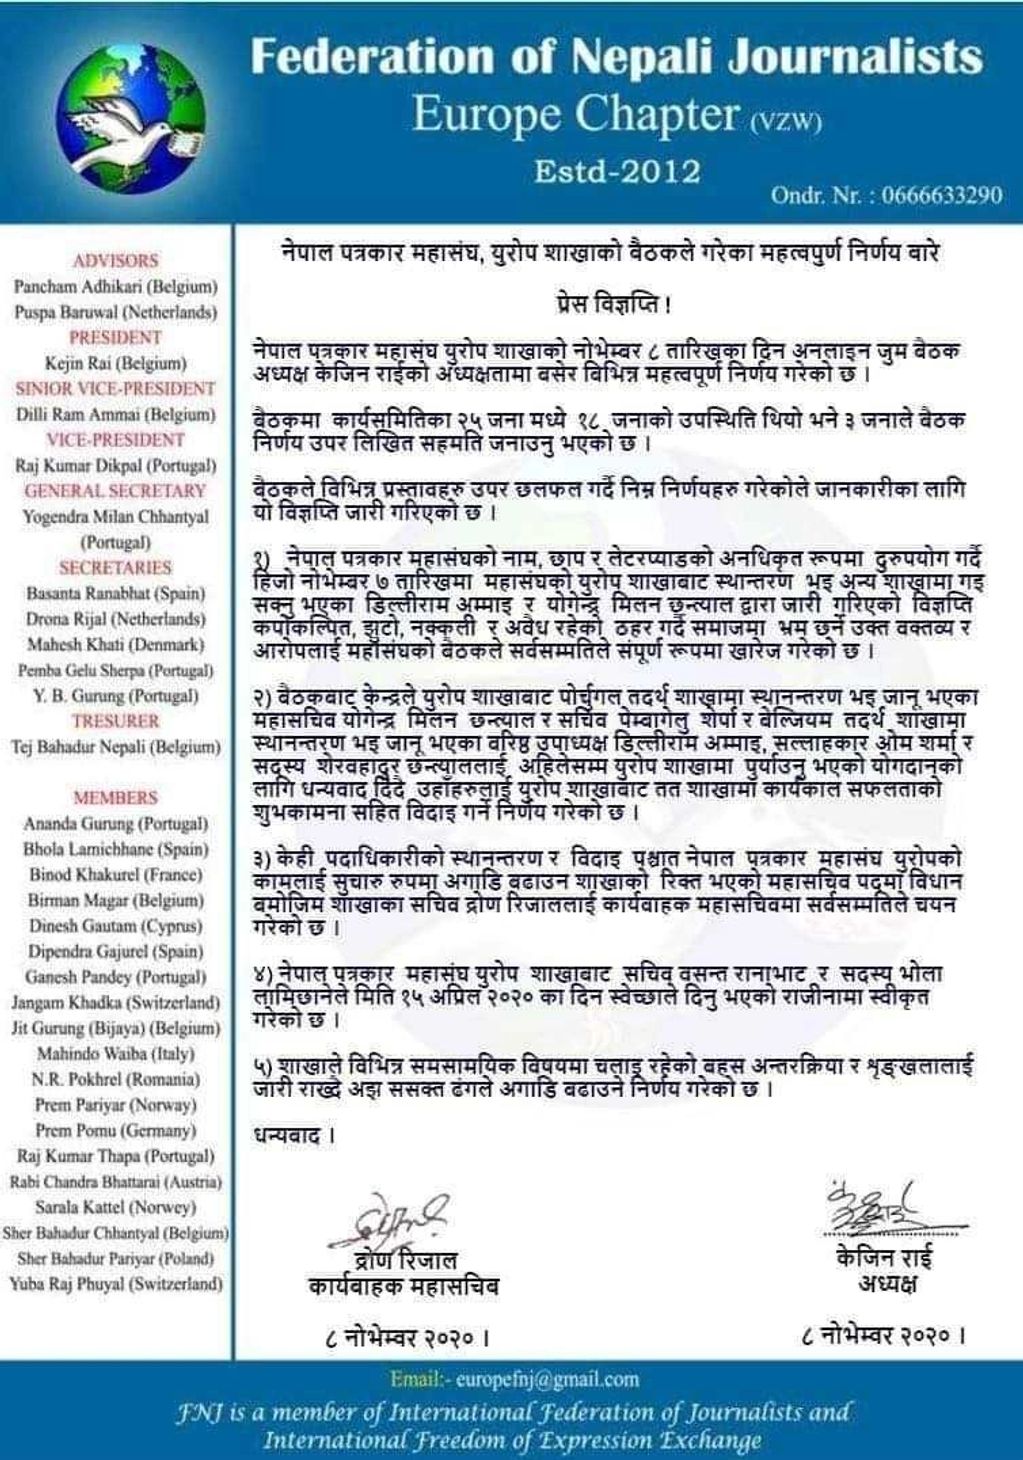 Federation of Nepali Journalists
Europe Chapter (VZW)
Estd-2012
Ondr. Nr. : 0666633290
ADVISORS
Pancham Adhikari (Belgium)
Puspa Baruwal (Netherlands)
PRESIDENT
Kejin Rai (Belgium)
SINIOR VICE-PRESIDENT
Dilli Ram Ammai (Belgium)
VICE-PRESIDENT
Raj Kumar Dikpal (Portugal)
GENERAL SECRETARY
Yogendra Milan Chhantyal
(Portugal)
SECRETARIES
Basanta Ranabhat (Spain)
Drona Rijal (Netherlands)
Mahesh Khati (Denmark)
Pemba Gelu Sherpa (Portugal)
Y. B. Gurung (Portugal)
TRESURER
Tej Bahadur Nepali (Belgium)
MEMBERS
Ananda Gurung (Portugal)
Bhola Lamichhane (Spain)
Binod Khakurel (France)
Birman Magar (Belgium)
Dinesh Gautam (Cyprus)
Dipendra Gajurel (Spain)
Ganesh Pandey (Portugal)
Jangam Khadka (Switzerland)
Jit Gurung (Bijaya) (Belgium)
Mahindo Waiba (Italy)
N.R. Pokhrel (Romania)
Prem Pariyar (Norway)
Prem Pomu (Germany)
Raj Kumar Thapa (Portugal)
Rabi Chandra Bhattarai (Austria)
Sarala Kattel (Norwey)
Sher Bahadur Chhantyal (Belgium)
Sher Bahadur Pariyar (Poland)
Yuba Raj Phuyal (Switzerland)
नेपाल पत्रकार महासंघ, युरोप शाखाको बैठकले गरेका महत्वपुर्ण निर्णय बारे
प्रेस विज्ञप्ति !
नेपाल पत्रकार महासंघ युरोप शाखाको नोभेम्बर ८ तारिखका दिन अनलाइन जुम बैठक
अध्यक्ष केजिन राईको अध्यक्षतामा बसेर बिभिन्न महत्वपूर्ण निर्णय गरेको छ ।
बैठकमा कार्यसमितिका २५ जना मध्ये १८ जनाको उपस्थिति थियो भने ३ जनाले बैठक
निर्णय उपर लिखित सहमति जनाउनु भएको छ ।
बैठकले विभिन्न प्रस्तावहरु उपर छलफल गर्दै निम्न निर्णयहरु गरेकोले जानकारीका लागि
यो विज्ञप्ति जारी गरिएको छ ।
१) नेपाल पत्रकार महासंघको नाम, छाप र लेटरप्याडको अनधिकृत रूपमा दुरुपयोग गर्दै
हिजो नोभेम्बर ७ तारिखमा महासंघको युरोप शाखाबाट स्थान्तरण भइ अन्य शाखामा गइ
सक्नु भएका डिल्लीराम अम्माइ र योगेन्द्र मिलन छन्त्याल द्वारा जारी गरिएको विज्ञप्ति
कपोकल्पित, झुटो, नक्कली र अवैध रहेको ठहर गर्दै समाजमा भ्रम छर्ने उक्त वक्तव्य र
आरोपलाई महासंघको बैठकले सर्वसम्मतिले संपूर्ण रूपमा खारेज गरेको छ ।
२) बैठकबाट केन्द्रले युरोप शाखाबाट पोर्चुगल तदर्थ शाखामा स्थानन्तरण भइ जानू भएका
महासचिव योगेन्द्र मिलन छन्त्याल र सचिव पेम्बागेलु शेर्पा र बेल्जियम तदर्थ शाखामा
स्थानन्तरण भइ जानू भएका वरिष्ठ उपाध्यक्ष डिल्लीराम अम्माइ, सल्लाहकार ओम शर्मा र
सदस्य शेरवहादुर छन्त्याललाई, अहिलेसम्म युरोप शाखामा पुर्याउनु भएको योगदानको
लागि धन्यवाद दिदै उहाँहरुलाई युरोप शाखाबाट तत शाखामा कार्यकाल सफलताको
शुभकामना सहित विदाइ गर्ने निर्णय गरेको छ ।
३) केही पदाधिकारीको स्थानन्तरण र विदाइ पश्चात नेपाल पत्रकार महासंघ युरोपको
कामलाई सुचारु रुपमा अगाडि बढाउन शाखाको रिक्त भएको महासचिव पदमा विधान
बमोजिम शाखाका सचिव द्रोण रिजाललाई कार्यवाहक महासचिवमा सर्वसम्मतिले चयन
गरेको छ ।
४) नेपाल पत्रकार महासंघ युरोप शाखाबाट सचिव वसन्त रानाभाट र सदस्य भोला
लामिछानेले मिति १५ अप्रिल २०२० का दिन स्वेच्छाले दिनु भएको राजीनामा स्वीकृत
गरेको छ ।
५) शाखाले विभिन्न समसामयिक विषयमा चलाइ रहेको बहस अन्तरक्रिया र शृङ्खलालाई
जारी राख्दै अझ ससक्त ढंगले अगाडि बढाउने निर्णय गरेको छ ।
धन्यबाद ।
द्रोण रिजाल
कार्यबाहक महासचिब
८ नोभेम्वर २०२० ।
केजिन राई
अध्यक्ष
८ नोभेम्वर २०२० ।
Email:- europefnj@gmail.com
FNJ is a member of International Federation of Journalists and
International Freedom of Expression Exchange